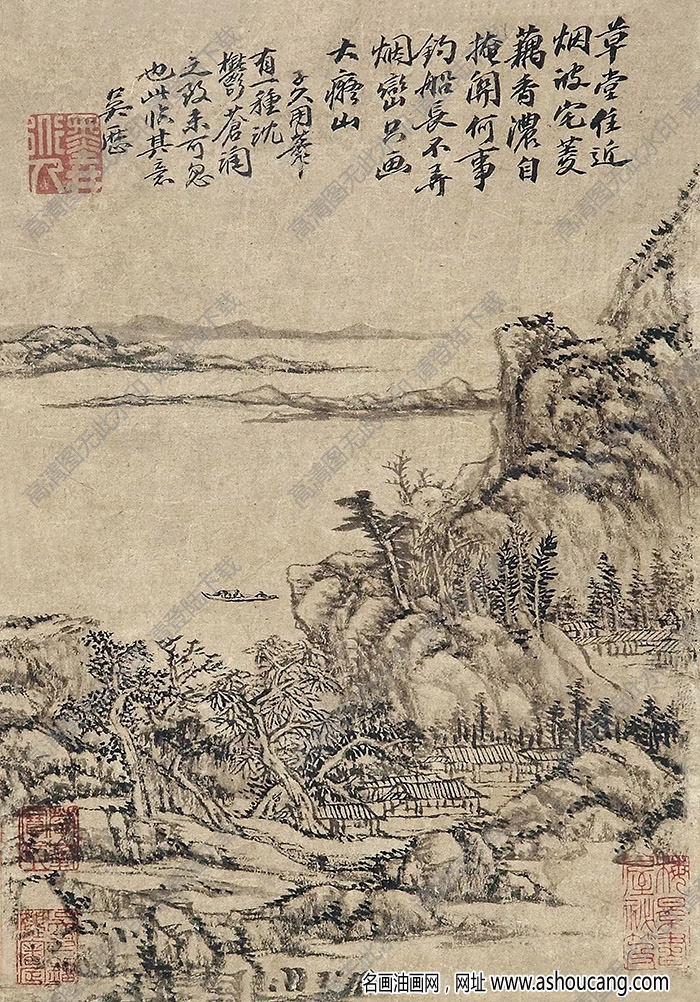 草堂住近
烟波宅菱
藕香浓自
掩关何事
钓船长不弄
烟峦只画
大痴山
子久用笔
有一种沈
郁苍润
之致未可忽
也此临其意
吴历
墨井
高清图无此水印
高登陆下载
名画油画网，网址 www.ashoucang.com